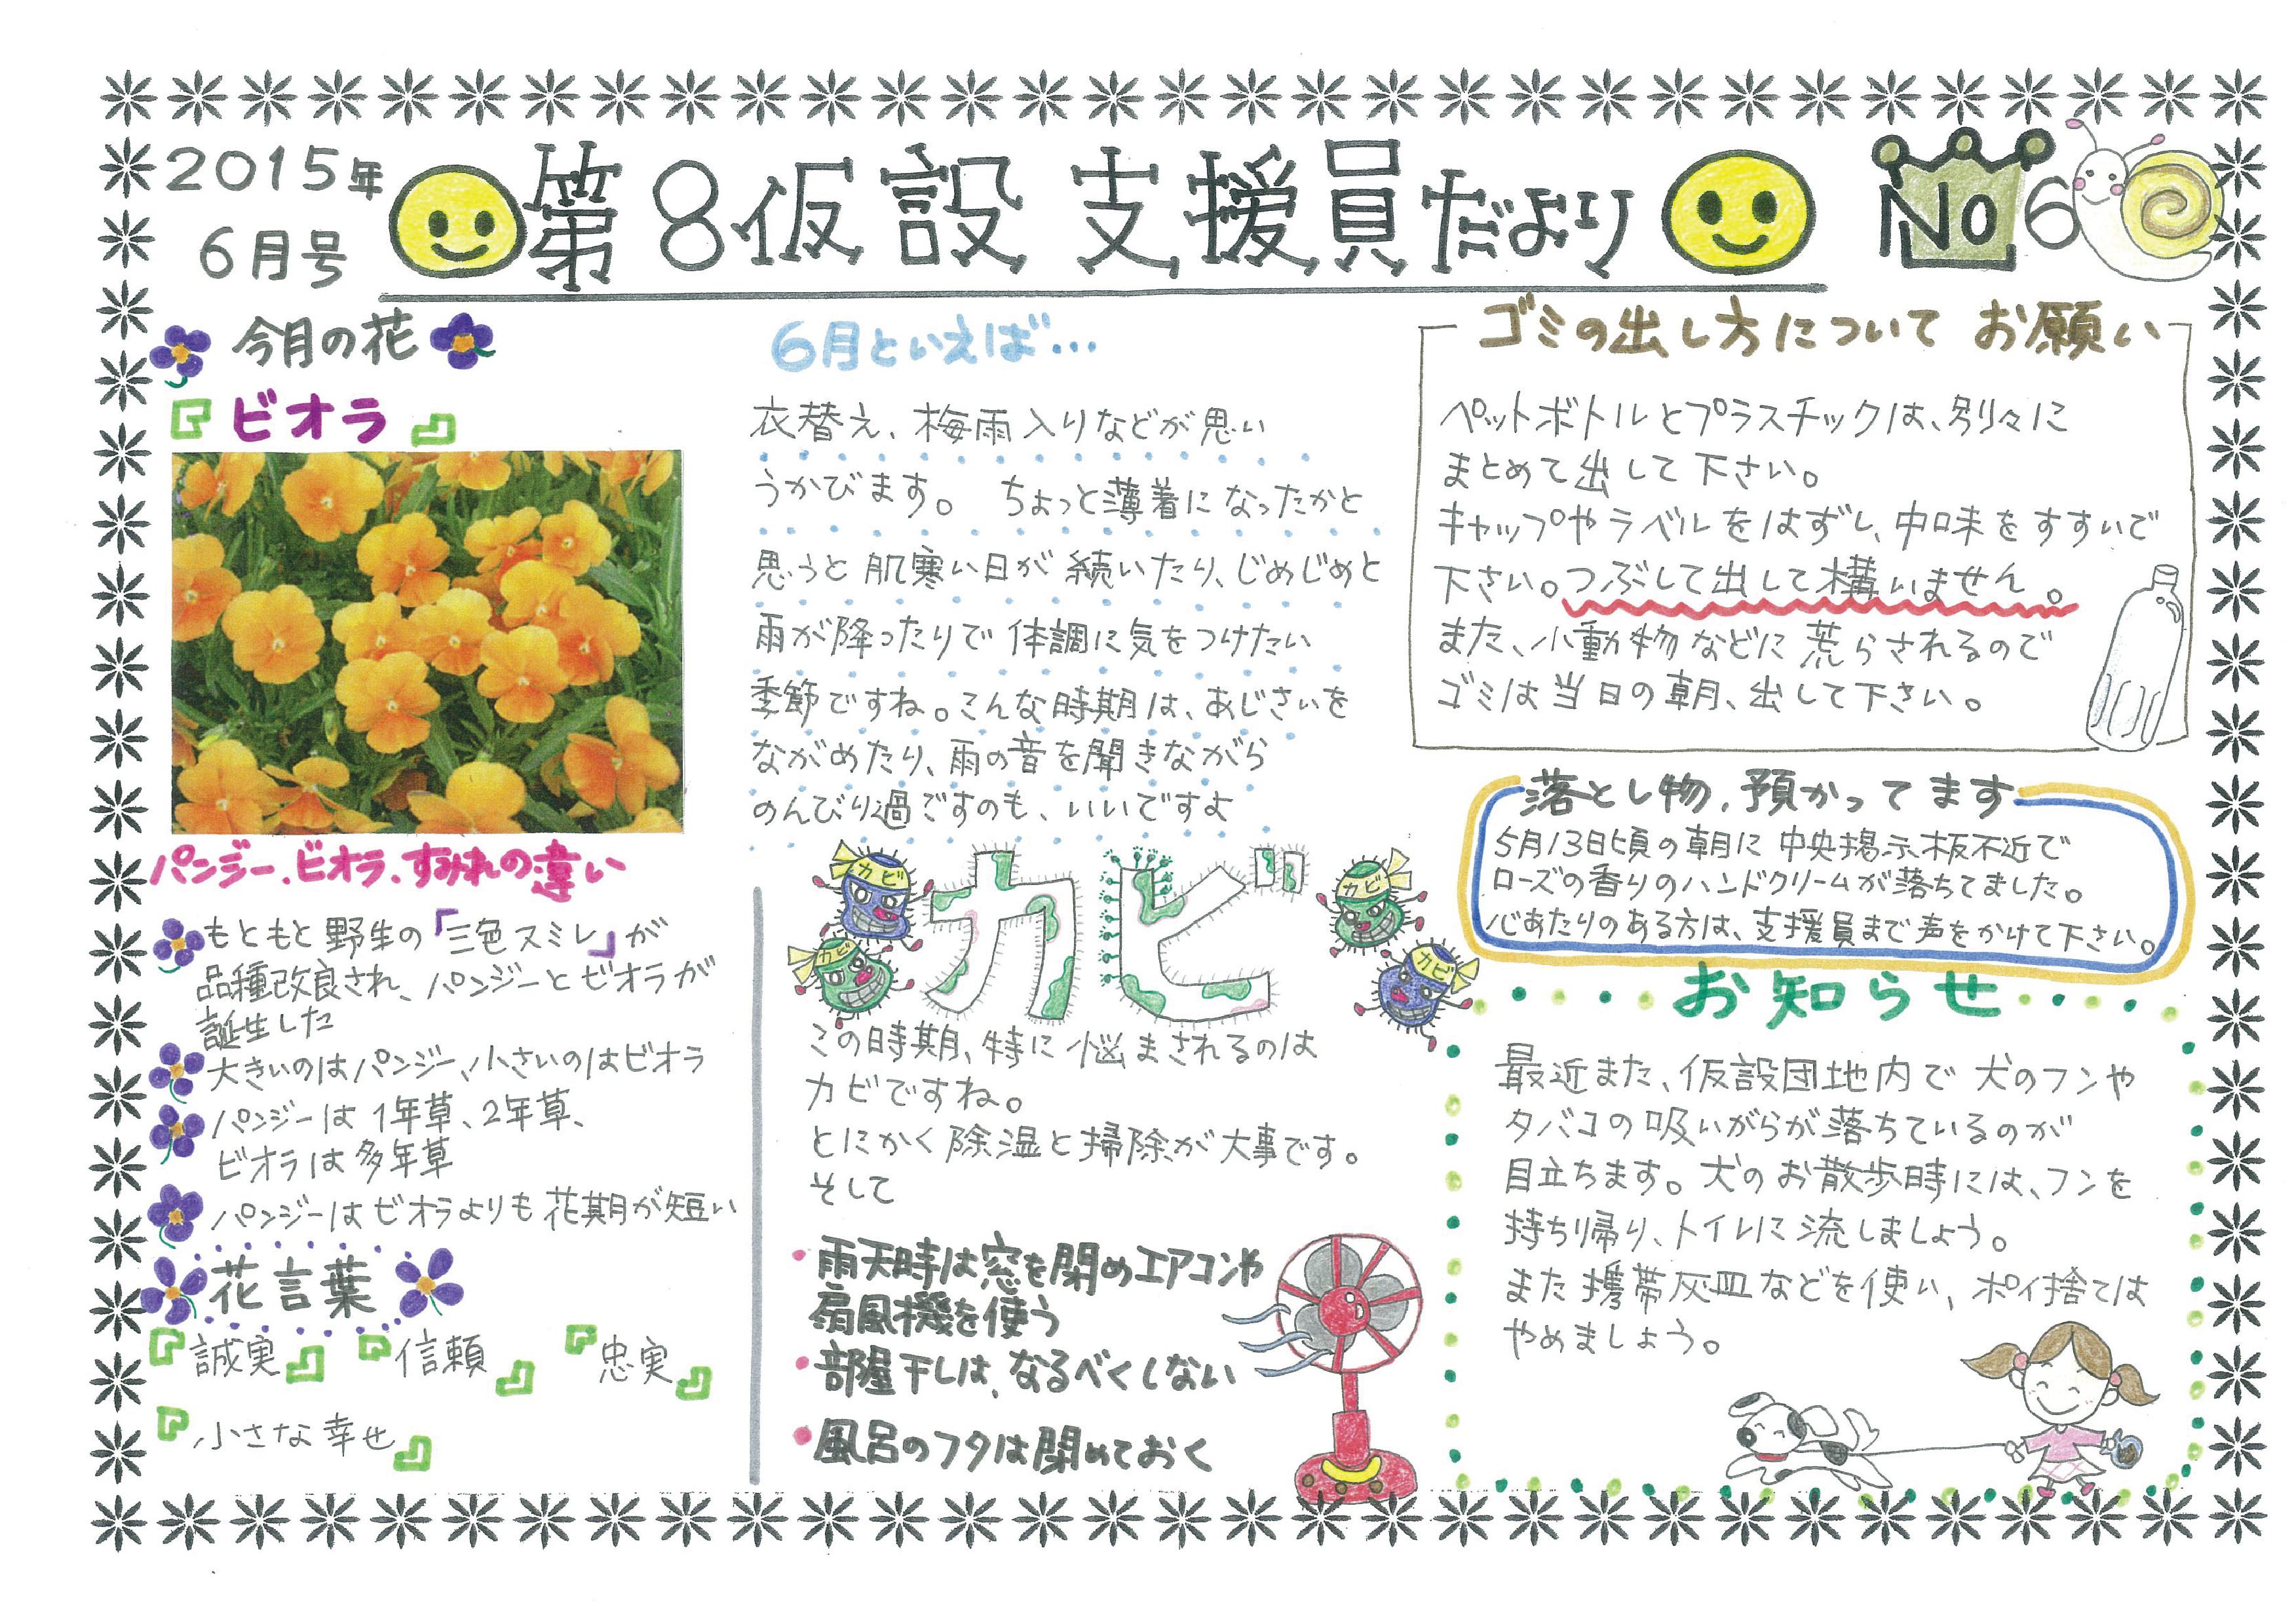 2015年
6月号
第8仮設 支援員だより
No 6
今月の花
『ビオラ』
パンジー、ビオラ、すみれの違い
もともと野生の「三色スミレ」が
品種改良され、パンジーとビオラが
誕生した
大きいのはパンジー、小さいのはビオラ
パンジーは1年草、2年草、
ビオラは多年草
パンジーはビオラよりも花期が短い
花言葉
『誠実』 『信頼』 『忠実』
『小さな幸せ』
6月といえば…
衣替え、梅雨入りなどが思い
うかびます。 ちょっと薄着になったかと
思うと肌寒い日が続いたり、じめじめと
雨が降ったりで体調に気をつけたい
季節ですね。こんな時期は、あじさいを
ながめたり、雨の音を聞きながら
のんびり過ごすのも、いいですよ
カビ
カビ
カビ
カビ
カビ
この時期、特に悩まされるのは
カビですね。
とにかく除湿と掃除が大事です。
そして
・雨天時は窓を閉めエアコンや
扇風機を使う
・部屋干しは、なるべくしない
・風呂のフタは閉めておく
ゴミの出し方について お願い
ペットボトルとプラスチックは、別々に
まとめて出して下さい。
キャップやラベルをはずし、中味をすすいで
下さい。つぶして出して構いません。
また、小動物などに荒らされるので
ゴミは当日の朝、出して下さい。
落とし物、預かってます
5月13日頃の朝に中央掲示板不近で
ローズの香りのハンドクリームが落ちてました。
心あたりのある方は、支援員まで声をかけて下さい。
お知らせ
最近また、仮設団地内で犬のフンや
タバコの吸いがらが落ちているのが
目立ちます。犬のお散歩時には、フンを
持ち帰り、トイレに流しましょう。
また携帯灰皿などを使い、ポイ捨ては
やめましょう。